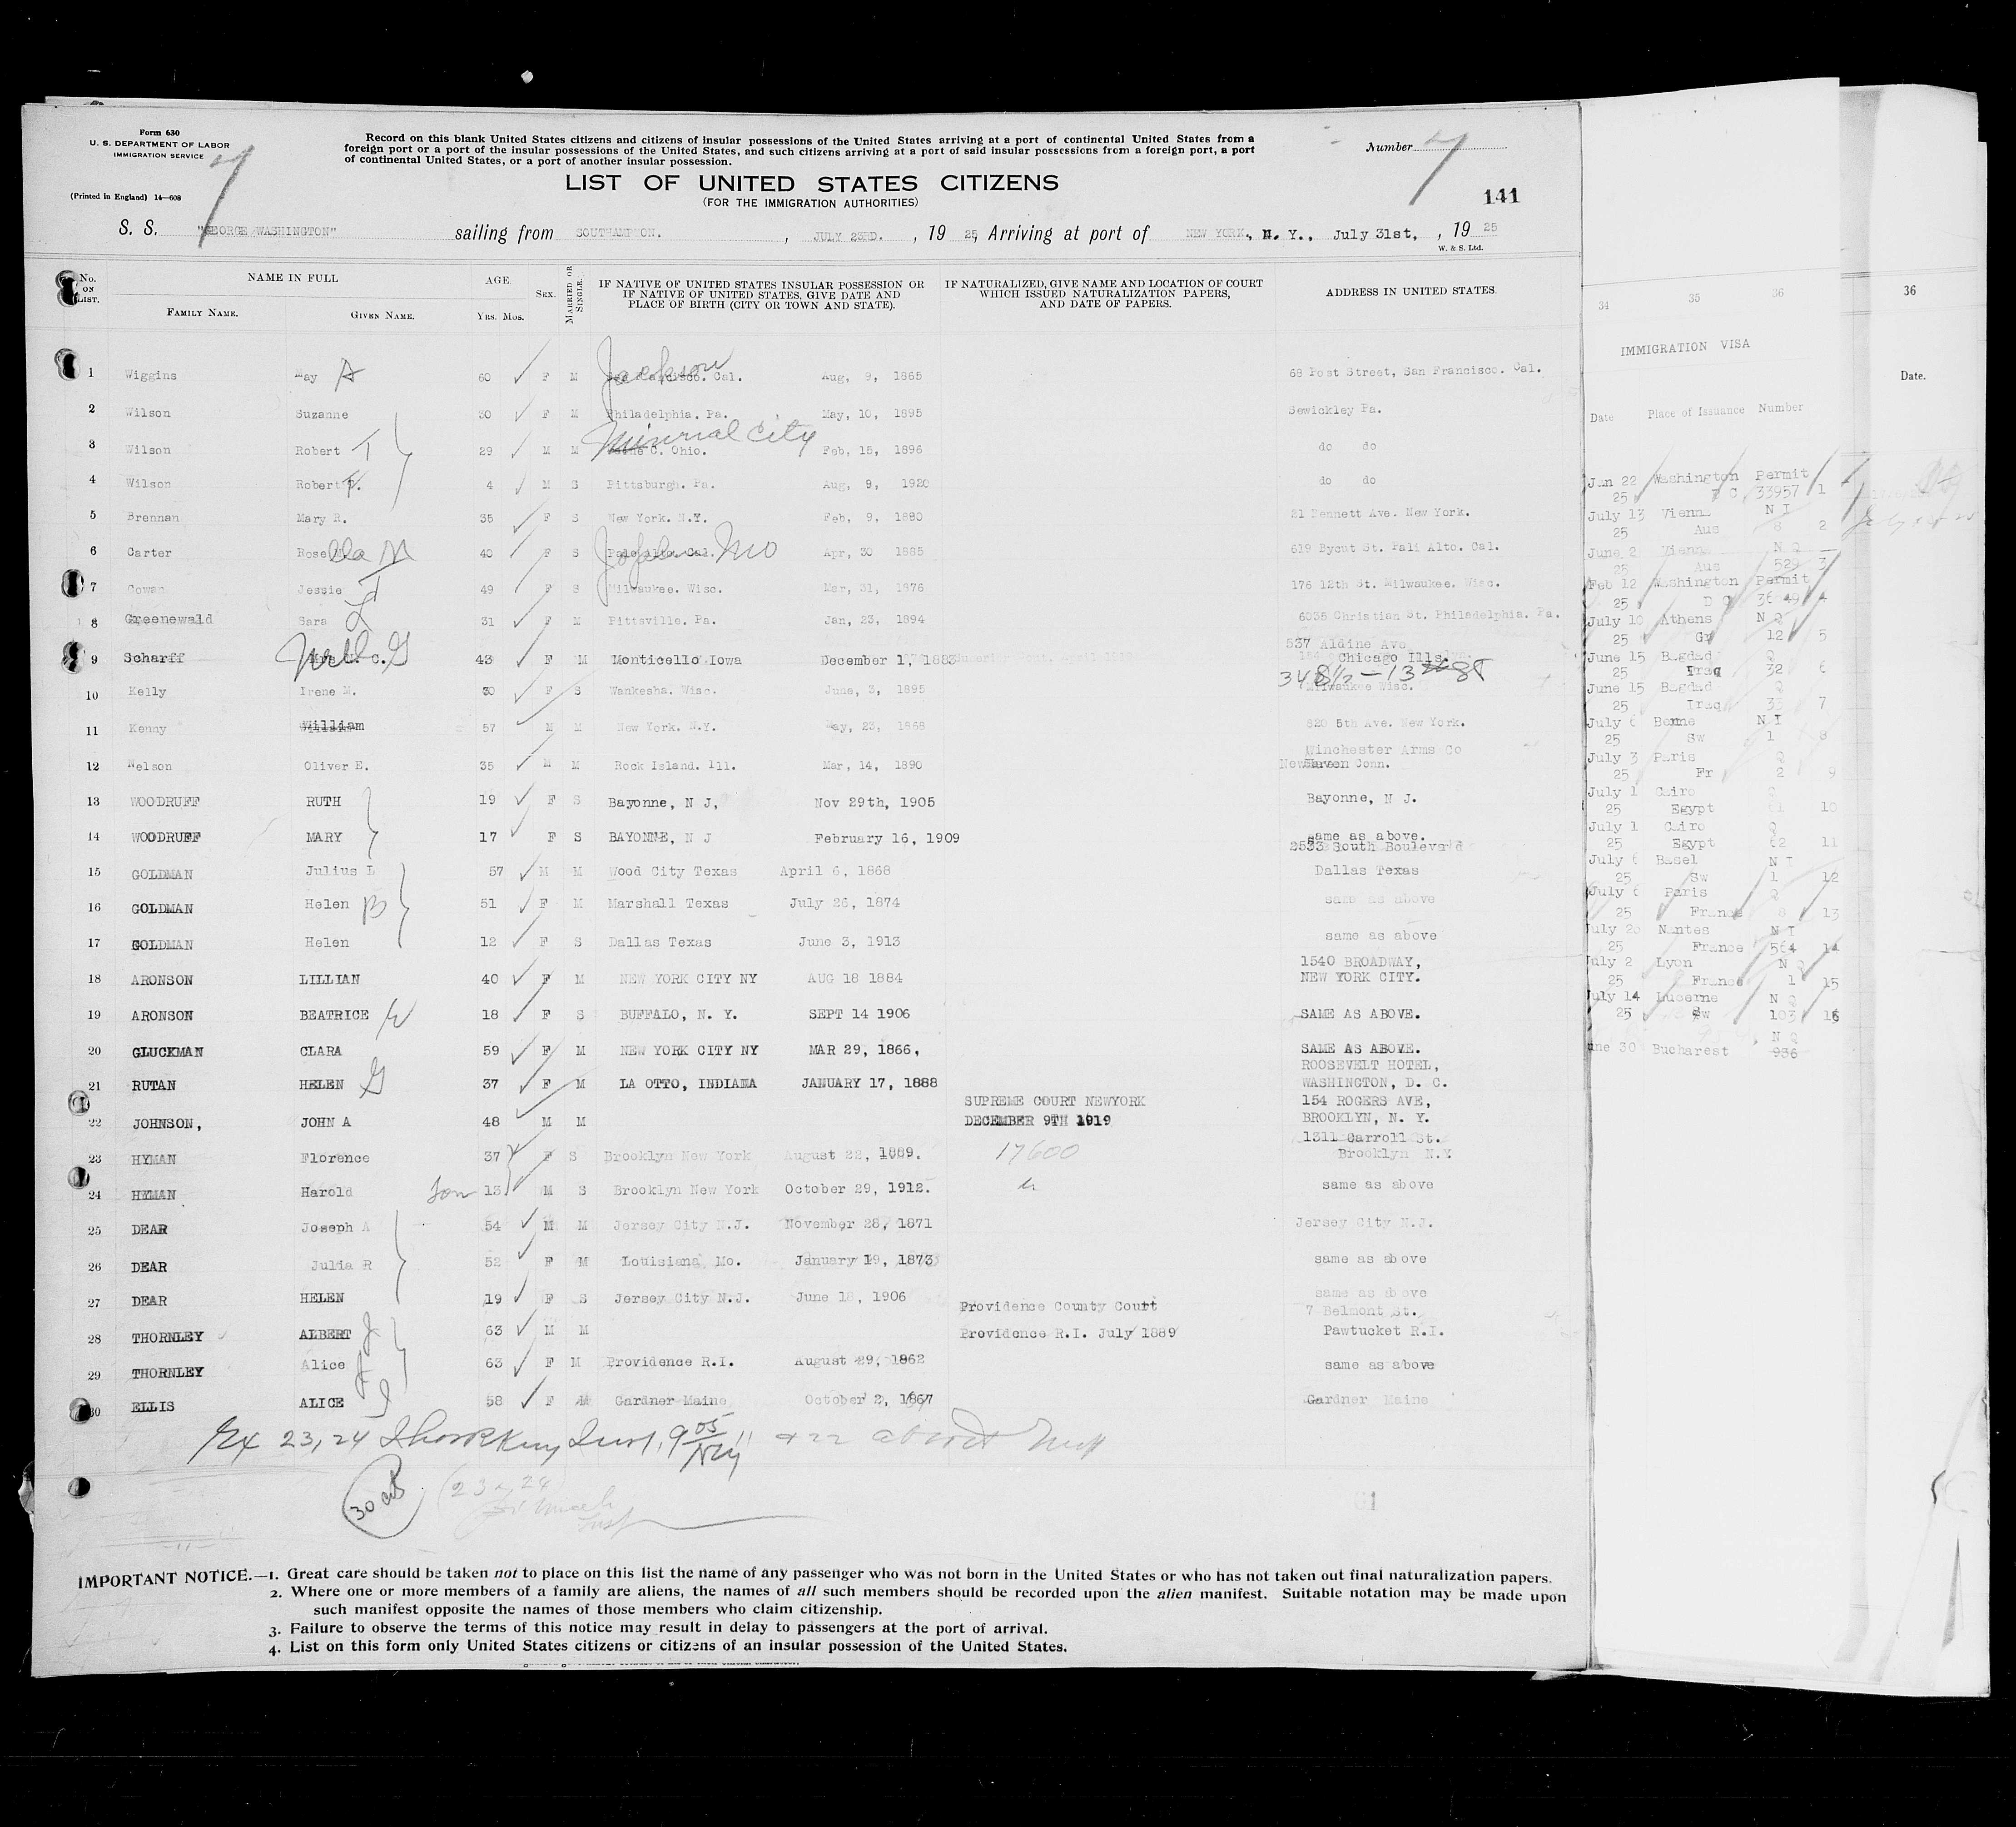 Form 630
U. S. DEPARTMENT OF LABOR
IMMIGRATION SERVICE
(Printed in England) 14—608
Record on this blank United States citizens and citizens of insular possessions of the United States arriving at a port of continental United States from a
foreign port or a port of the insular possessions of the United States, and such citizens arriving at a port of said insular possessions from a foreign port, a port
of continental United States, or a port of another insular possession.
Number 7
7
LIST OF UNITED STATES CITIZENS
(FOR THE IMMIGRATION AUTHORITIES)
141
S. S. "GEORGE WASHINGTON" sailing from SOUTHAMPTON. , JULY 23RD. , 19 25, Arriving at port of NEW YORK., N. Y., July 31st, , 19 25
W. & S. Ltd.
No. ON LIST. NAME IN FULL AGE SEX. MARRIED OR SINGLE. IF NATIVE OF UNITED STATES INSULAR POSSESSION OR IF NATIVE OF UNITED STATES, GIVE DATE AND PLACE OF BIRTH (CITY OR TOWN AND STATE). IF NATURALIZED, GIVE NAME AND LOCATION OF COURT WHICH ISSUED NATURALIZATION PAPERS, AND DATE OF PAPERS. ADDRESS IN UNITED STATES.
FAMILY NAME. GIVEN NAME. YRS. MOS.
1 Wiggins May A 60 F M Jackson Cal. Aug, 9, 1865 68 Post Street, San Francisco. Cal.
2 Wilson Suzanne 30 F M Philadelphia. Pa. May, 10, 1895 Sewickley Pa.
3 Wilson Robert T 29 M M Minerial City C. Ohio. Feb, 15, 1896 do do
4 Wilson Robert T. 4 M S Pittsburgh. Pa. Aug, 9, 1920 do do
5 Brennan Mary R. 35 F S New York. N.Y. Feb, 9, 1880 21 Bennett Ave. New York.
6 Carter Rosella M 40 F S Palo Alto. Cal. Joplin Mo Apr, 30 1885 619 Bycut St. Pali Alto. Cal.
7 Cowan Jessie T 49 F S Milwaukee. Wisc. Mar, 31, 1876 176 12th St. Milwaukee. Wisc.
8 Greenewald Sara L 31 F M Pittsville. Pa. Jan, 23, 1894 6035 Christian St. Philadelphia. Pa.
9 Scharff C. G 43 F M Monticello Iowa December 1, 1883 537 Aldine Ave
Chicago Ills.
10 Kelly Irene M. 30 F S Wankesha. Wisc. June, 3, 1895 348½ — 13 St
Milwaukee Wisc.
11 Kenny William 57 M M New York. N.Y. May, 23, 1868 820 5th Ave. New York.
12 Nelson Oliver E. 35 M M Rock Island. Ill. Mar, 14, 1890 Winchester Arms Co
New Haven Conn.
13 WOODRUFF RUTH 19 F S Bayonne, N J, Nov 29th, 1905 Bayonne, N J.
14 WOODRUFF MARY 17 F S BAYONNE, N J February 16, 1909 same as above.
15 GOLDMAN Julius L 57 M M Wood City Texas April 6, 1868 2533 South Boulevard
Dallas Texas
16 GOLDMAN Helen B 51 F M Marshall Texas July 26, 1874 same as above
17 GOLDMAN Helen 12 F S Dallas Texas June 3, 1913 same as above
18 ARONSON LILLIAN 40 F M NEW YORK CITY NY AUG 18 1884 1540 BROADWAY,
NEW YORK CITY.
19 ARONSON BEATRICE W 18 F S BUFFALO, N. Y. SEPT 14 1906 SAME AS ABOVE.
20 GLUCKMAN CLARA 59 F M NEW YORK CITY NY MAR 29, 1866, SAME AS ABOVE.
21 RUTAN HELEN G 37 F M LA OTTO, INDIANA JANUARY 17, 1888 ROOSEVELT HOTEL,
WASHINGTON, D. C.
22 JOHNSON, JOHN A 48 M M SUPREME COURT NEWYORK
DECEMBER 9TH 1919 154 ROGERS AVE,
BROOKLYN, N. Y.
23 HYMAN Florence 37 F S Brooklyn New York August 22, 1889. 17600 1311 Carroll St.
Brooklyn N.Y
24 HYMAN Harold son 13 M S Brooklyn New York October 29, 1912. same as above
25 DEAR Joseph A 54 M M Jersey City N.J. November 28, 1871 Jersey City N.J.
26 DEAR Julia R 52 F M Louisiana, Mo. January 19, 1873 same as above
27 DEAR HELEN 19 F S Jersey City N.J. June 18, 1906 same as above
28 THORNLEY ALBERT J 63 M M Providence County Court
Providence R.I. July 1889 7 Belmont St.
Pawtucket R.I.
29 THORNLEY Alice J 63 F M Providence R.I. August 29, 1862 same as above
30 ELLIS ALICE I 58 F M Gardner Maine October 2, 1867 Gardner Maine
Ex 23, 24 9 05 + 22
30 cits (23 + 24
IMPORTANT NOTICE.—1. Great care should be taken not to place on this list the name of any passenger who was not born in the United States or who has not taken out final naturalization papers.
2. Where one or more members of a family are aliens, the names of all such members should be recorded upon the alien manifest. Suitable notation may be made upon
such manifest opposite the names of those members who claim citizenship.
3. Failure to observe the terms of this notice may result in delay to passengers at the port of arrival.
4. List on this form only United States citizens or citizens of an insular possession of the United States.
34 35 36
IMMIGRATION VISA
Date Place of Issuance Number
Jan 22 Washington Permit
25 D C 33957 1
July 13 Vienna N I
25 Aus 8 2
June 2 Vienna N Q
25 Aus 529 3
Feb 12 Washington Permit
25 D C
July 10 Athens N Q
25 Gr 12 5
June 15 Bagdad Q
25 Iraq 32 6
June 15 Bagdad Q
25 Iraq 33 7
July 6 Berne N I
25 Sw 1 8
July 3 Paris Q
25 Fr 2 9
July 1 Cairo Q
25 Egypt 61 10
July 1 Cairo Q
25 Egypt 62 11
July 6 Basel N I
25 Sw 1 12
July 6 Paris Q
25 France 8 13
July 20 Nantes N I
25 France 564 14
July 2 Lyon N Q
25 France 1 15
July 14 Lucerne N Q
25 Sw 103 16
N Q
une 30 Bucharest 936
36
Date.